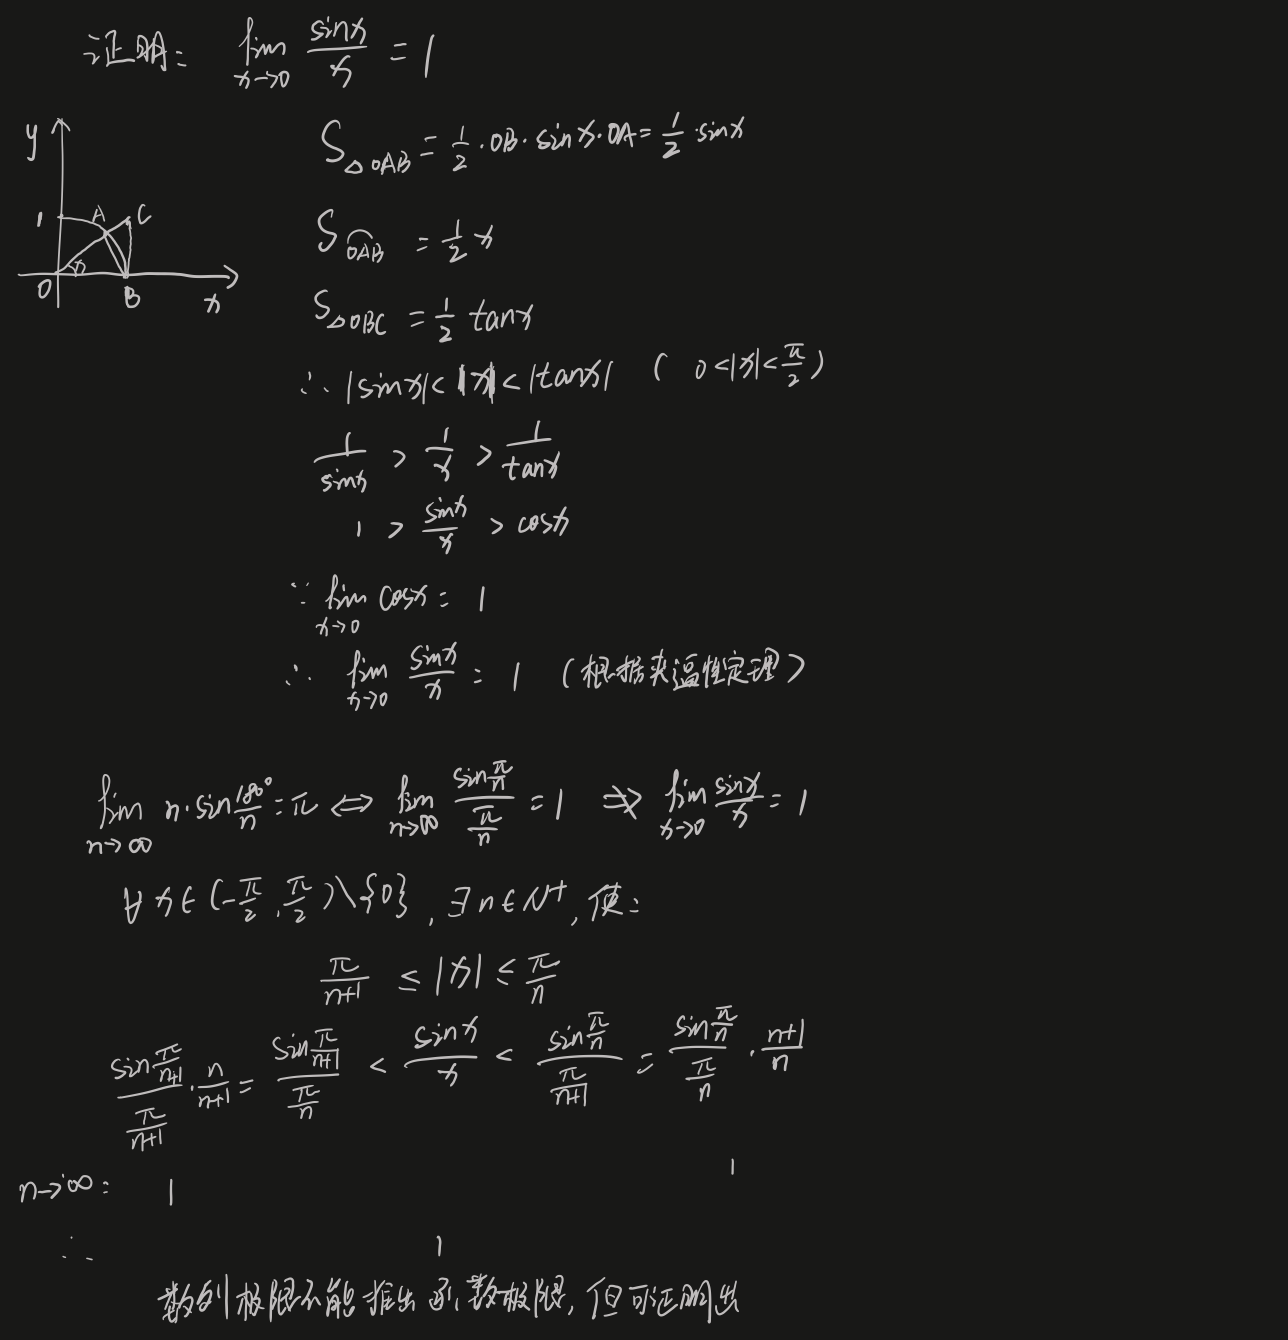 证明: lim x→0 sinx/x = 1
y
1
A
C
x
O
B
x
S△OAB = 1/2 · OB · sinx · OA = 1/2 · sinx
S⌒OAB = 1/2 x
S△OBC = 1/2 tanx
∴ |sinx| < |x| < |tanx| ( 0<|x|<π/2 )
1/sinx > 1/x > 1/tanx
1 > sinx/x > cosx
∵ lim x→0 cosx = 1
∴ lim x→0 sinx/x = 1 (根据夹逼性定理)
lim n→∞ n·sin 180°/n = π ⇔ lim n→∞ sin π/n / π/n = 1 ⇏ lim x→0 sinx/x = 1
∀x∈(-π/2, π/2)\{0}, ∃n∈N⁺, 使:
π/n+1 ≤ |x| ≤ π/n
sin π/n+1 / π/n+1 · n/n+1 = sin π/n+1 / π/n < sinx/x < sin π/n / π/n+1 = sin π/n / π/n · n+1/n
n→∞: 1 1
∴ 1
数列极限不能推出函数极限, 但可证明出